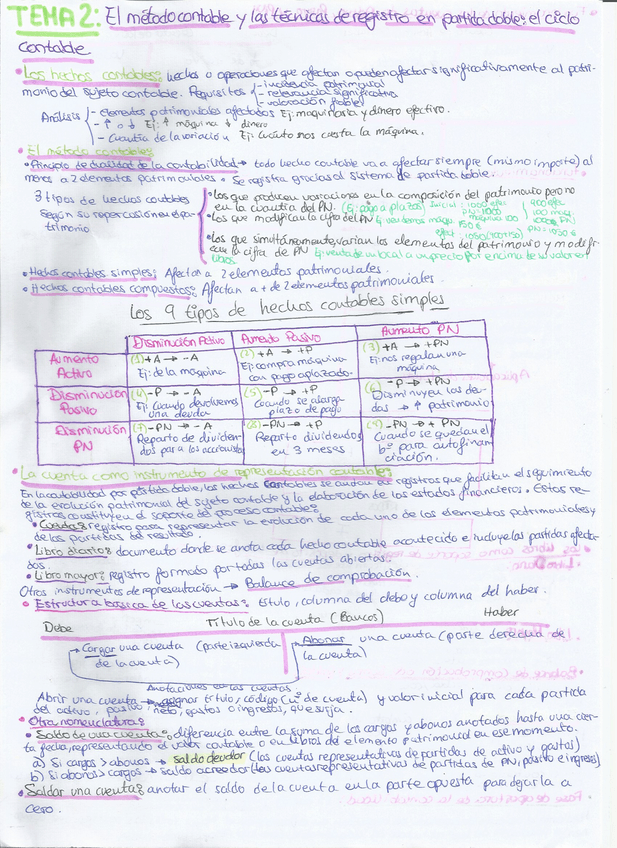 TEMA 2: El método contable y las técnicas de registro en partida doble: el ciclo
contable
• Los hechos contables: hechos o operaciones que afectan o pueden afectar significativamente al patri-
monio del sujeto contable. Requisitos - incidencia patrimonial
- relevancia significativa
- valoración fiable
Análisis - elementos patrimoniales afectados Ej: maquinaria y dinero efectivo.
- ↑ o ↓ Ej: ↑ máquina ↓ dinero
- Cuantía de la variación Ej: Cuánto nos cuesta la máquina.
• El método contable:
• Principio de dualidad de la contabilidad → todo hecho contable va a afectar siempre (mismo importe) al
menos a 2 elementos patrimoniales • Se registra gracias al sistema de partida doble.
3 tipos de hechos contables
según su repercusión en el pa-
trimonio
• Los que producen variaciones en la composición del patrimonio pero no
en la cuantía del PN.
• Los que modifican la cifra del PN
• Los que simultáneamente varían los elementos del patrimonio y modifi-
can la cifra de PN Ej: venta de un local a un precio por encima de su valor
• Hechos contables simples: Afectan a 2 elementos patrimoniales.
• Hechos contables compuestos: Afectan a + de 2 elementos patrimoniales.
Los 9 tipos de hechos contables simples
Disminución Activo Aumento Pasivo Aumento PN
Aumento Activo
(1) +A → -A
Ej: de la máquina
(2) +A → +P
Ej: compra máquina
con pago aplazado.
(3) +A → +PN
Ej: nos regalan una
máquina
Disminución Pasivo
(4) -P → -A
Ej: Cuando devolvemos
una deuda.
(5) -P → +P
Cuando se alarga
plazo de pago
(6) -P → +PN
Disminuyen las deu-
das → ↑ patrimonio
Disminución PN
(7) -PN → -A
Reparto de dividen-
dos para los accionistas
(8) -PN → +P
Reparto dividendos
en 3 meses
(9) -PN → +PN
Cuando se quedan el
bº para autofinan
ciación.
• La cuenta como instrumento de representación contable:
En la contabilidad por partida doble, los hechos contables se anotan en registros que facilitan el seguimiento
de la evolución patrimonial del sujeto contable y la elaboración de los estados financieros. Estos re-
gistros constituyen el soporte del proceso contable:
• Cuenta: registro para representar la evolución de cada uno de los elementos patrimoniales y
de las partidas del resultado.
• Libro diario: documento donde se anota cada hecho contable acontecido e incluye las partidas afecta-
das.
• Libro mayor: registro formado por todas las cuentas abiertas.
Otros instrumentos de representación → Balance de comprobación.
• Estructura básica de las cuentas: título, columna del debe y columna del haber.
Debe Título de la cuenta (Bancos) Haber
Cargar una cuenta (parte izquierda
de la cuenta)
Abonar una cuenta (parte derecha de
la cuenta)
Anotaciones en las cuentas
Abrir una cuenta → asignar título, código (nº de cuenta) y valor inicial para cada partida
del activo, pasivo, neto, gastos o ingresos, que surja.
• Otra nomenclatura:
• Saldo de una cuenta: diferencia entre la suma de los cargos y abonos anotados hasta una cier-
ta fecha, representando el valor contable o en libros del elemento patrimonial en ese momento.
a) Si cargos > abonos → saldo deudor (las cuentas representativas de partidas de activo y gastos)
b) Si abonos > cargos → saldo acreedor (las cuentas representativas de partidas de PN, pasivo e ingresos)
• Saldar una cuenta: anotar el saldo de la cuenta en la parte opuesta para dejarla a
cero.